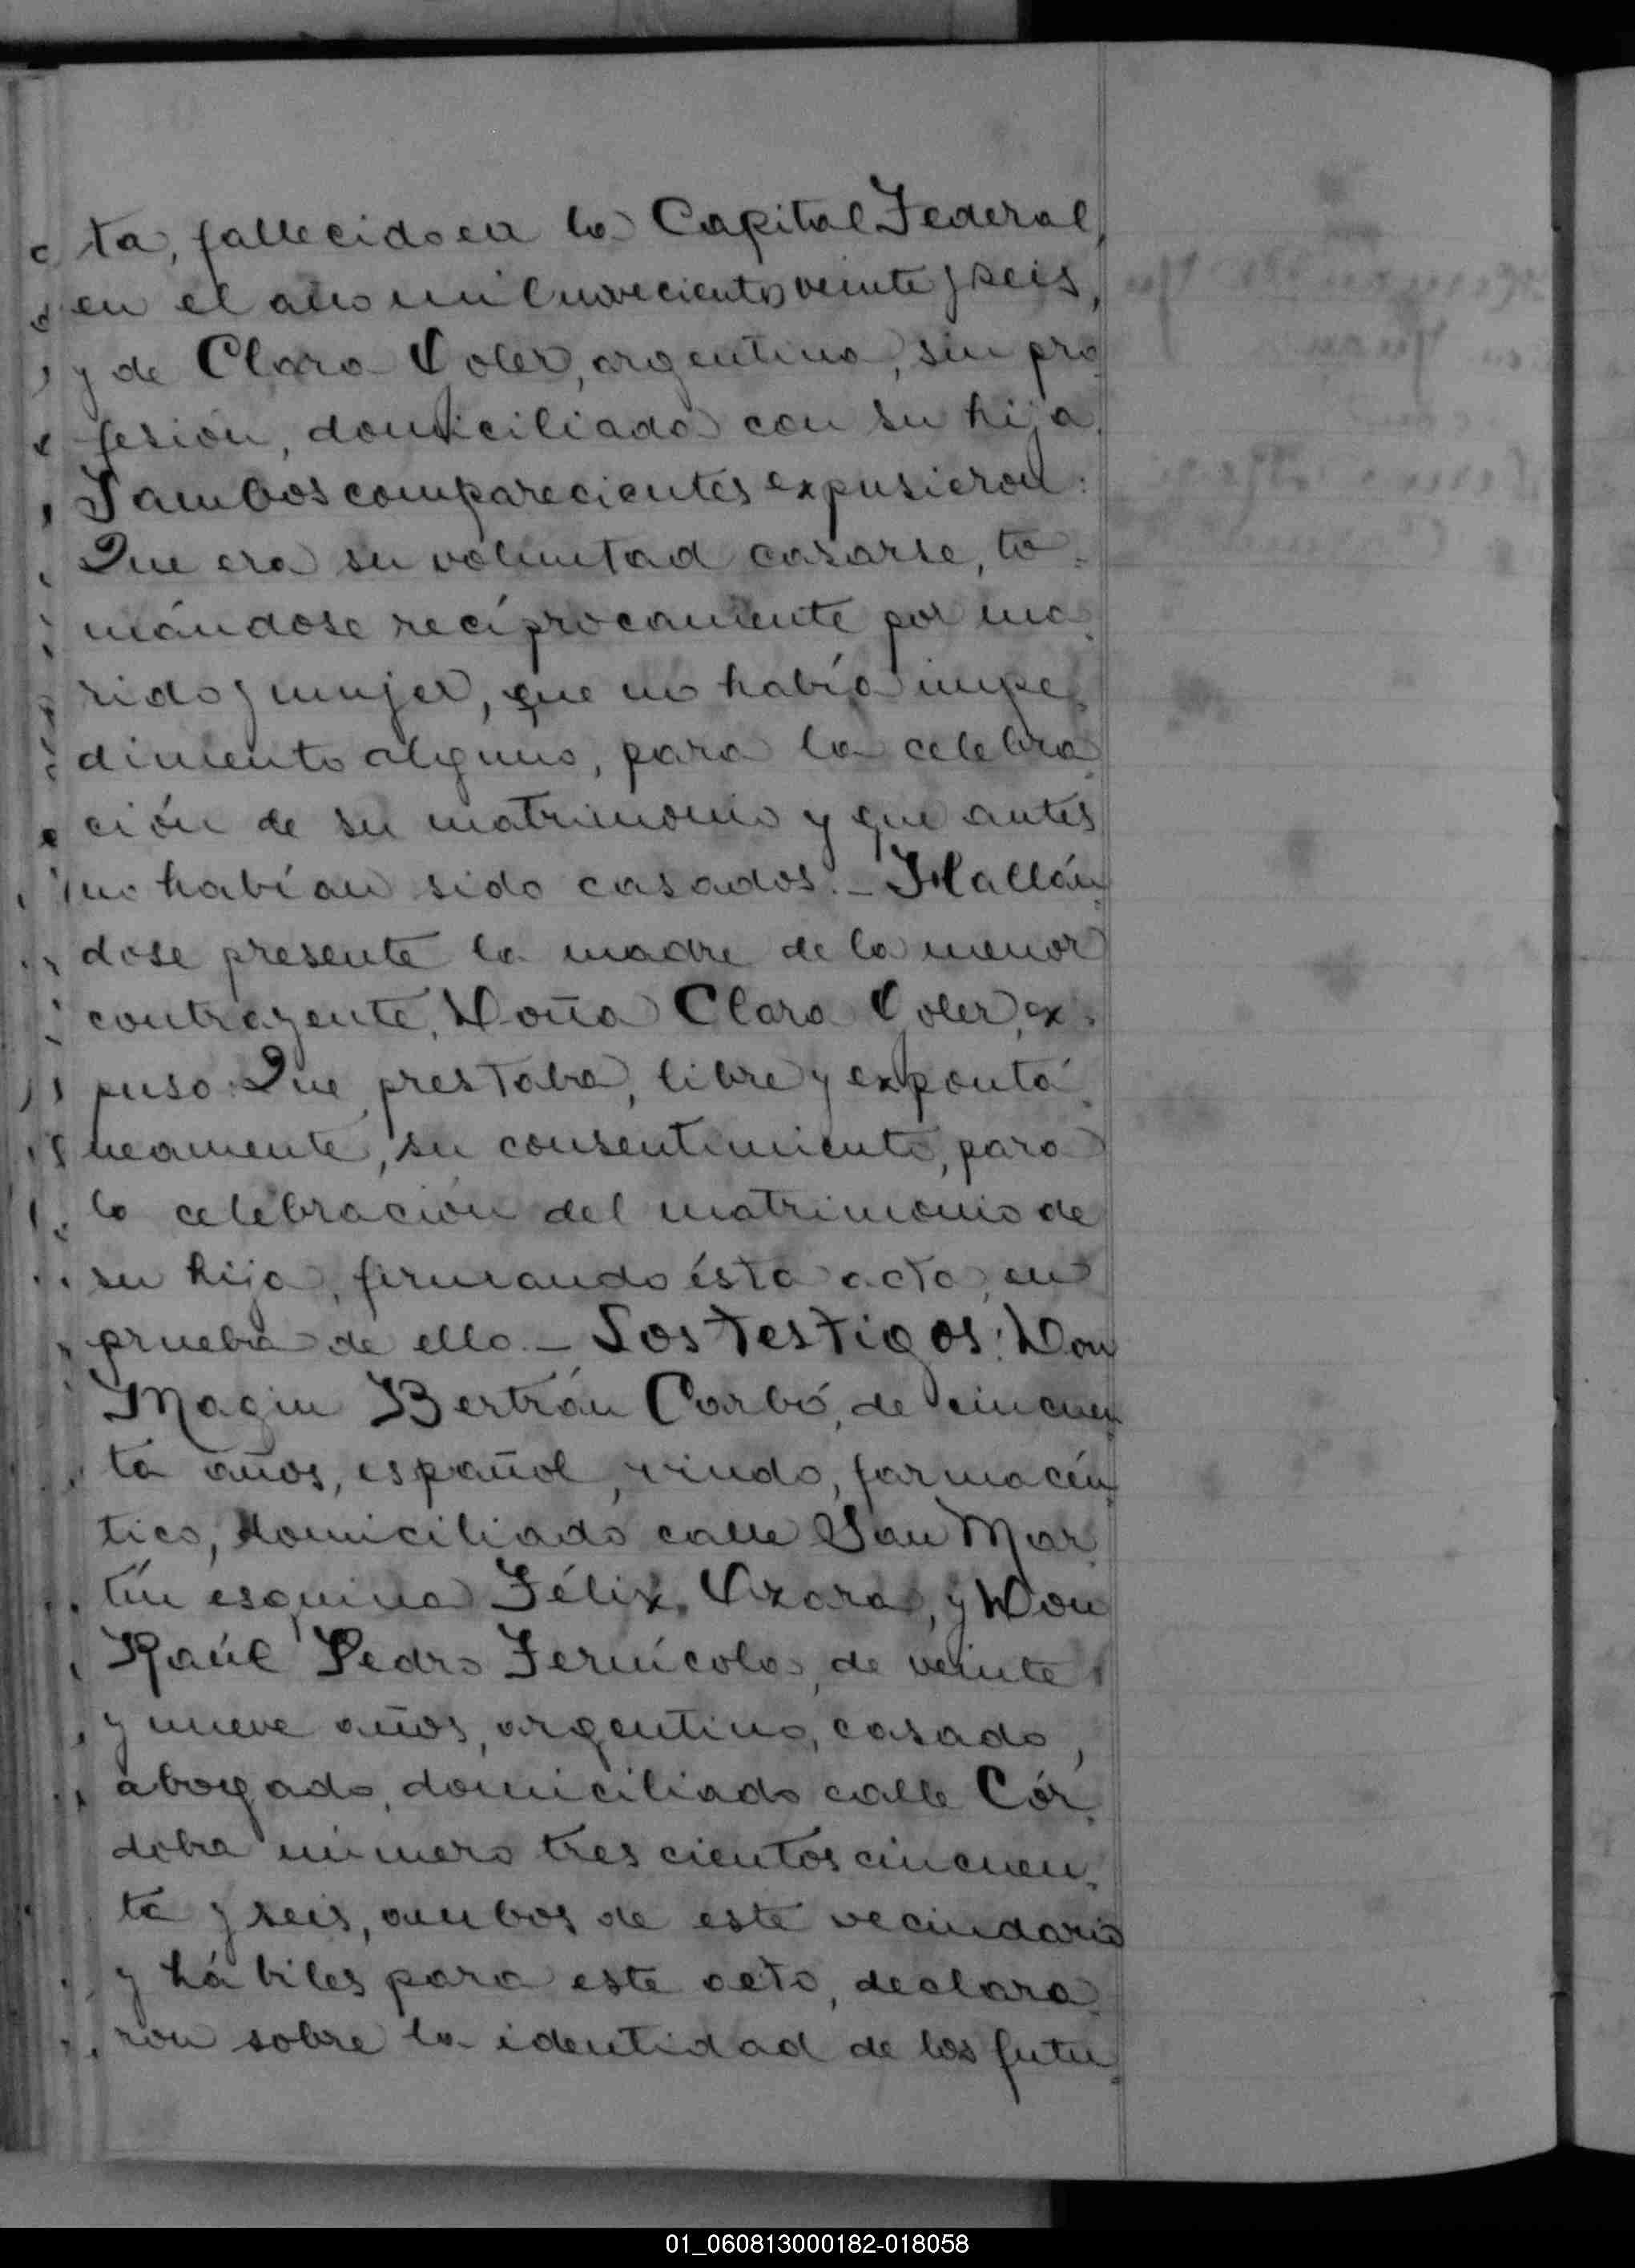 ta, fallecido en la Capital Federal,
en el año mil novecientos veinte y seis,
y de Clara Voler, argentina, sin pro
fesión, domiciliada con su hija.
Y ambos comparecientes expusieron:
Que era su voluntad casarse, to=
mándose recíprocamente por ma=
rido y mujer, que no había impe=
dimento alguno, para la celebra=
ción de su matrimonio y que antes
no habían sido casados.- Hallán=
dose presente la madre de la menor
contrayente, Doña Clara Voler, ex=
puso: Que prestaba, libre y expontá=
neamente, su consentimiento, para
la celebración del matrimonio de
su hija, firmando ésta acta, en
prueba de ello.- Los testigos: Don
Magin Bertrán Carbó, de cincuen
ta años, español, viudo, farmacéu=
tico, domiciliado calle San Mar=
tín esquina Félix Azara, y Don
Raúl Pedro Fernícola, de veinte
y nueve años, argentino, casado,
abogado, domiciliado calle Cór=
doba número trescientos cincuen=
ta y seis, ambos de este vecindario
y hábiles para este acto, declara=
ron sobre la identidad de los futu=
01_060813000182-018058